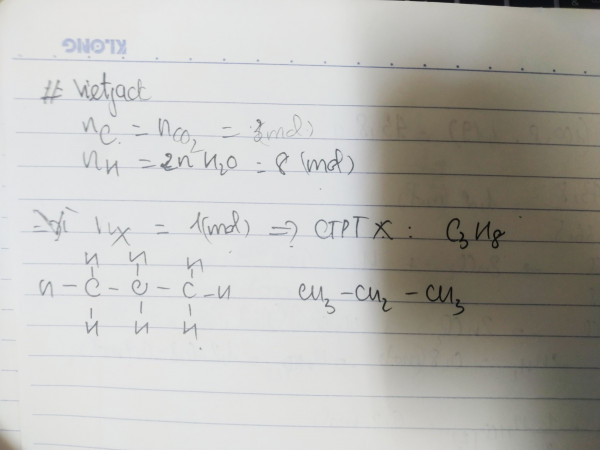 KLONG
# Vietjack
nC = nCO2 = 3(mol)
nH = 2nH2O = 8 (mol)
nX = 1(mol) => CTPT X : C3H8
H H H
H - C - C - C - H CH3 - CH2 - CH3
H H H